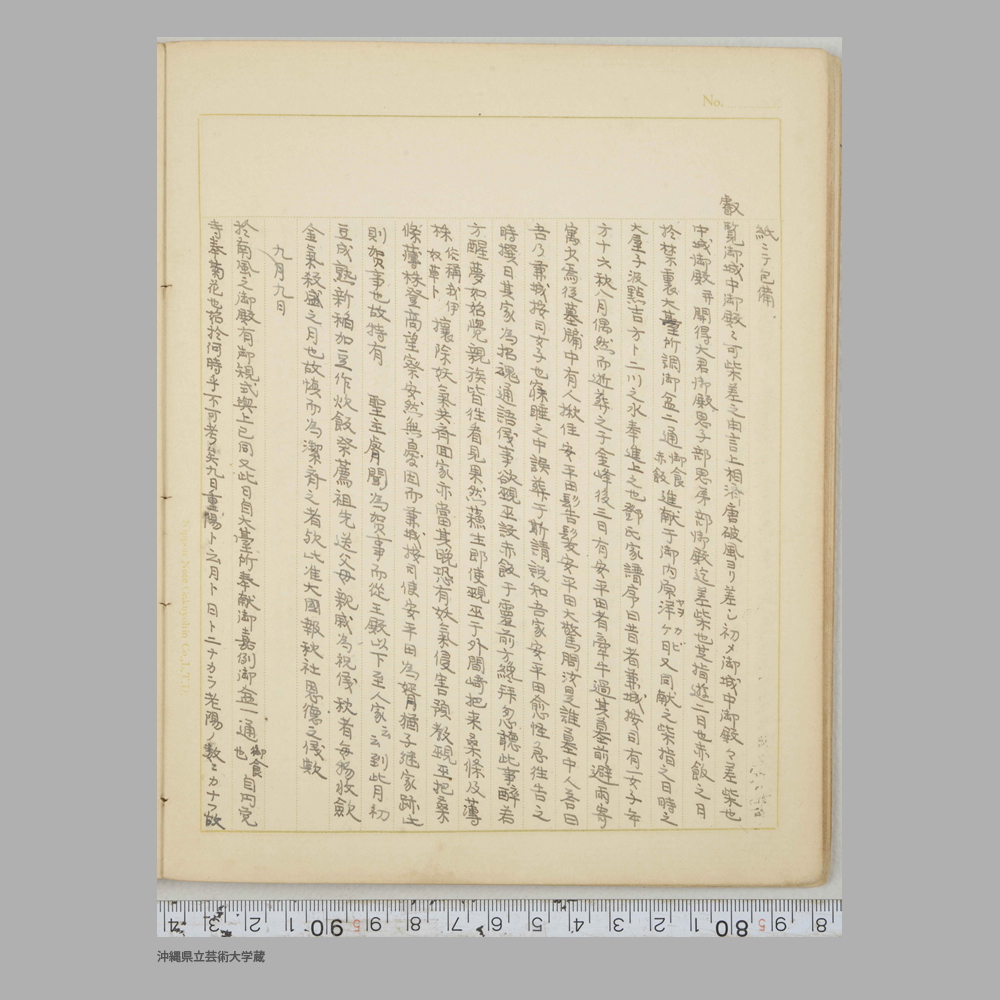 No.
紙ニテ包備
叡覧御城中御殿々可柴差之由言上相済唐破風ヨリ差シ初メ御城中御殿々差柴也
中城御殿并聞得大君御殿思子部思弟部御殿迄差柴也其指遊二日也赤飯之日
於禁裏大臺所調御盆二通御食赤飯進献于御内原洋ケ月又同献之柴指之日時之
大屋子涙點吉方ト二川之水奉進上之也鄧氏家譜序曰昔者兼城按司有一女子年
方十六秋八月偶然而逝葬之于金峰後三日有安平田者牽牛過其墓前避雨寄
寓欠為後墓牖中有人揪住安平田髟告髪安平田大驚問汝是誰墓中人答曰
吾乃兼城按司女子也寐睡之中誤葬于斯請説知吾家安平田愈怪急往告之
時撰日其家為招魂通語儀事欲覡巫設赤飯于靈前方纔拜忽聴此事醉者
方醒夢如始覺親族皆往看見果然蘓生即使覡巫于外間崎把来桑條及薄
株俗稱我伊奴草ト攘除妖氣共斉回家亦當其晩恐有妖氣侵害預教覡巫把桑
條薄株登高望察安然無憂因而兼城按司使安平田為婿猶子継家跡上
則賀事也故特有 聖主睿聞為賀事而從王殿以下至人家云云到此月初
豆成熟新稲加豆作炊飯祭薦祖先送父母親戚為祝儀秋者毎物收斂
金氣殺盛之月也故慎而為潔斉之者欤此准大國報秋社恩徳之儀欤
九月九日
於南風之御殿有御規式與上巳同又此日自大臺所奉献御嘉例御盆一通御食也自内党
寺奉菊花也始於何時乎不可考矣九日重陽ト云月ト日ト二ナカラ老陽ノ數ニカナフ故
Nippon Note Gakuyohin Co. L.T.D.
沖縄県立芸術大学蔵